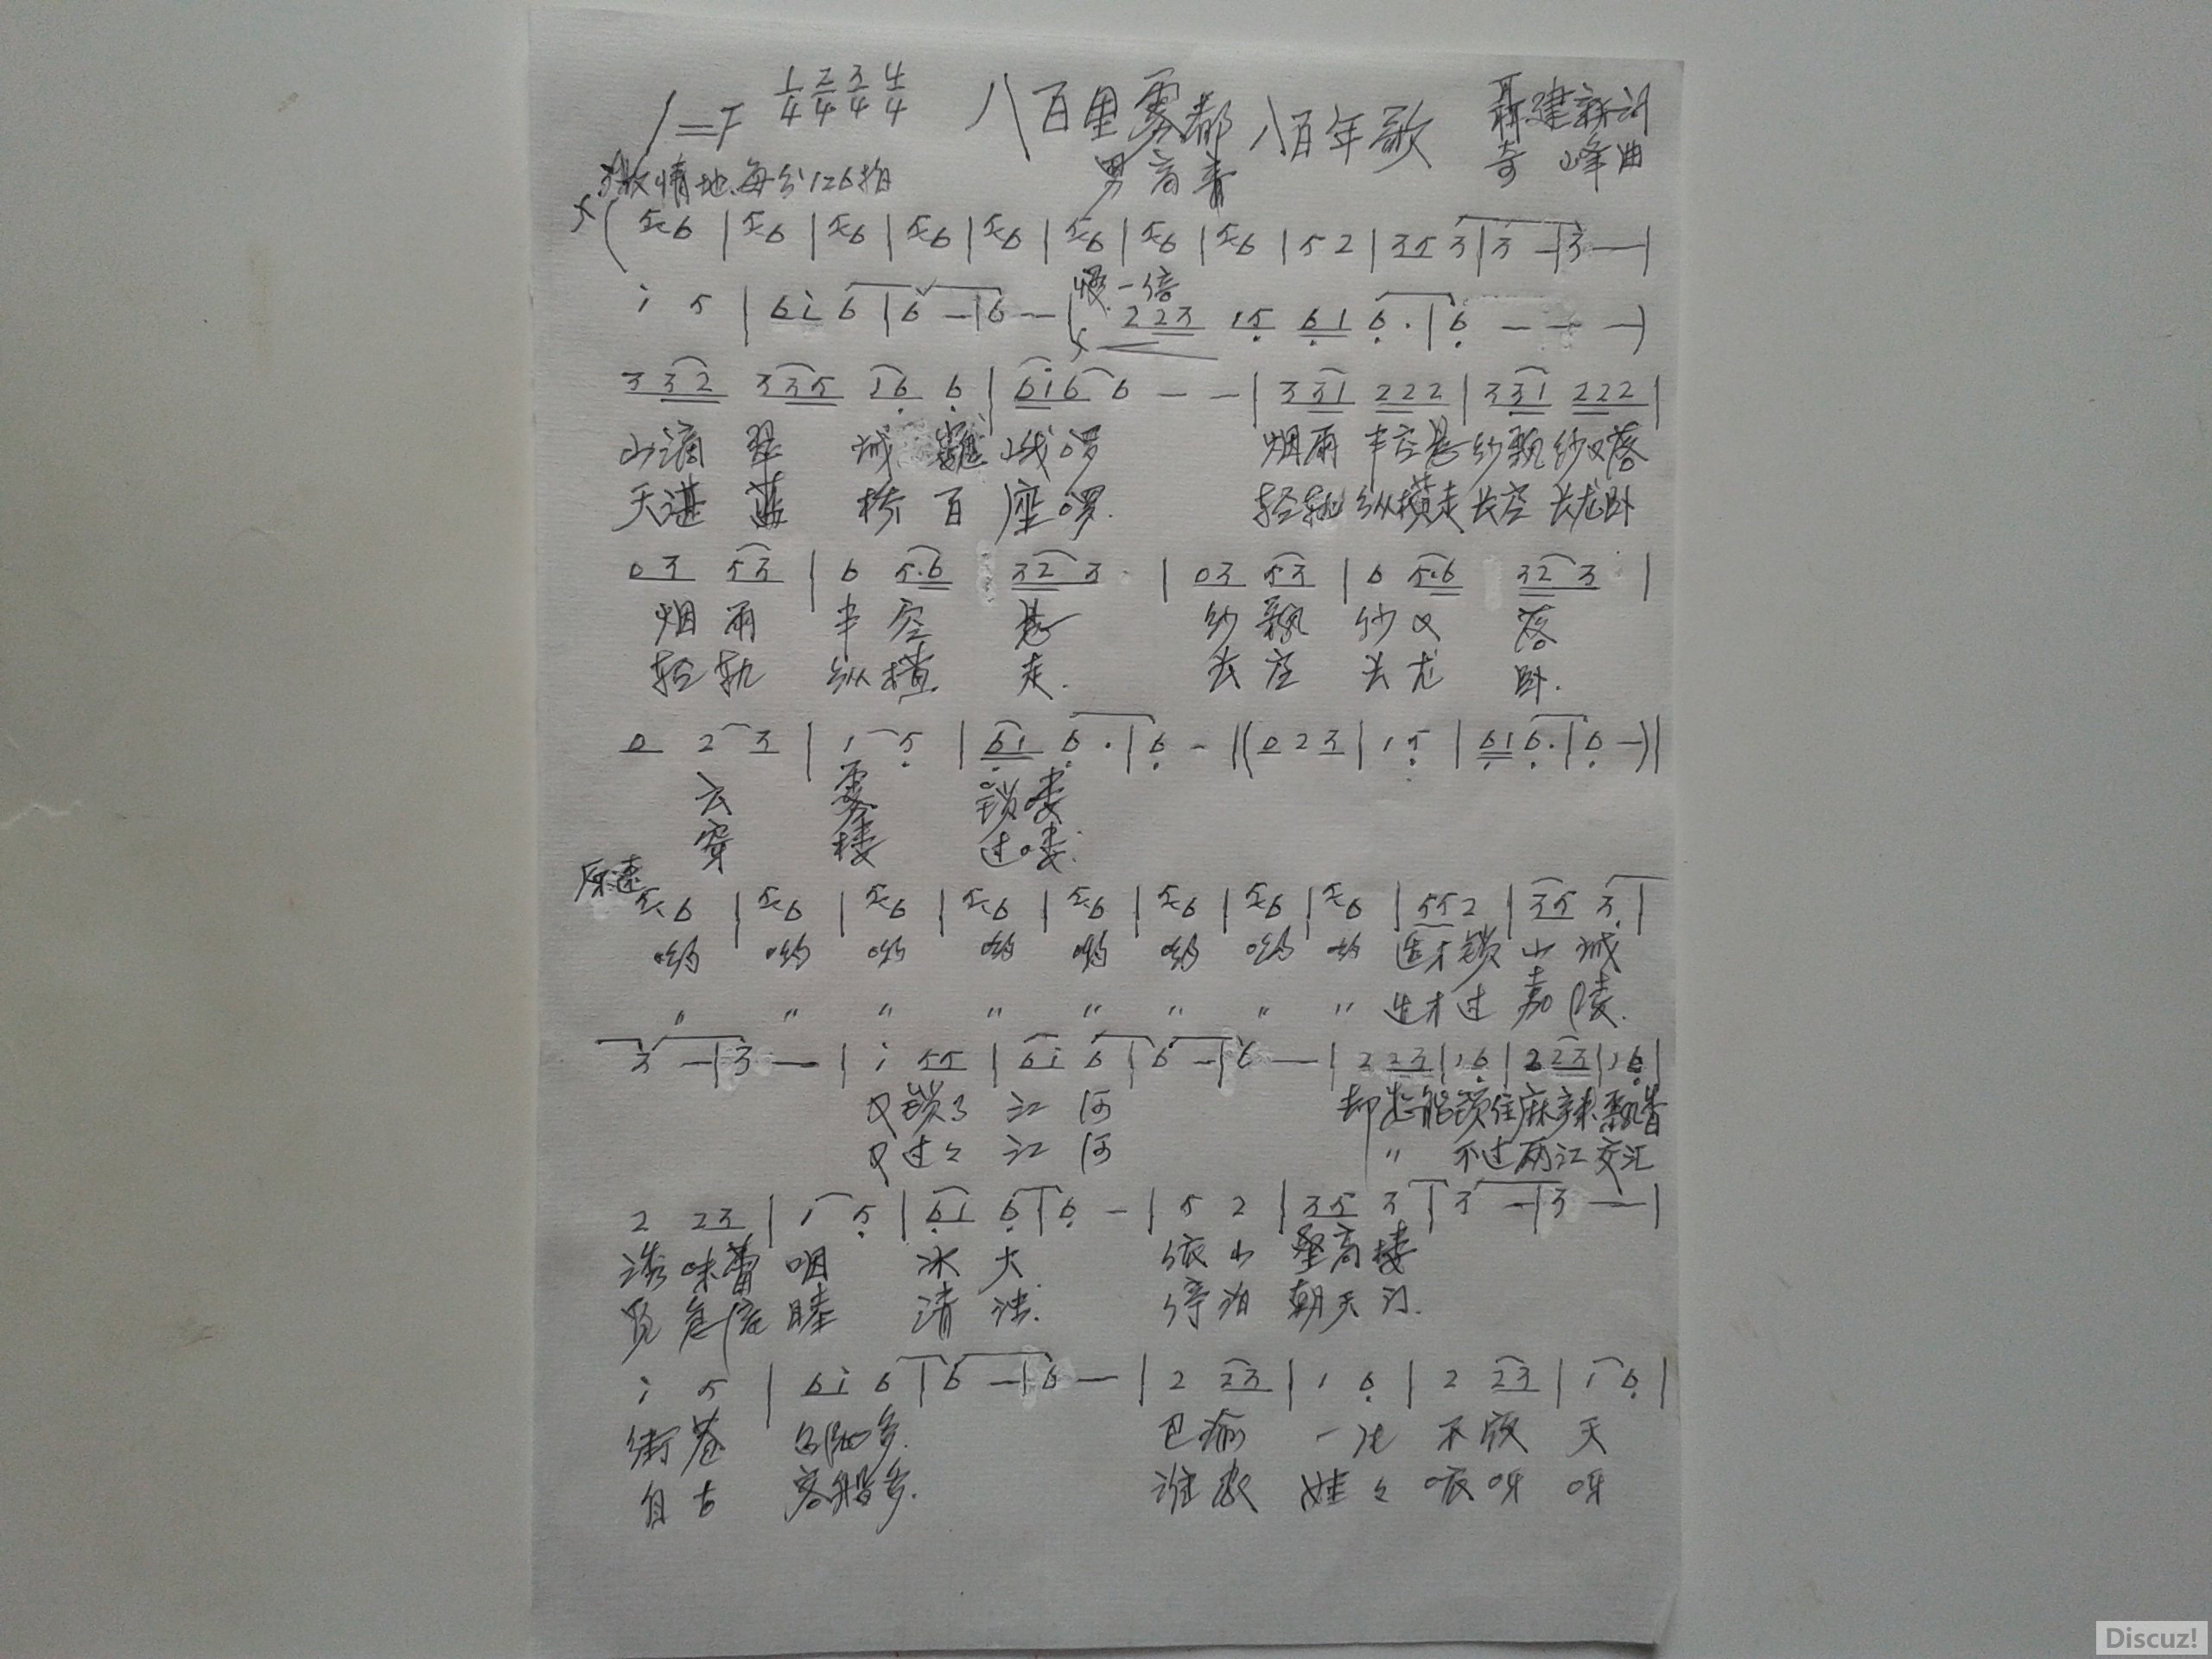 1=F 1/4 2/4 3/4 4/4 八百里雾都 八百年歌 聂建新词
男高音 奇峰曲
激情地 每分126拍
f ( 5 6 | 5 6 | 5 6 | 5 6 | 5 6 | 5 6 | 5 6 | 5 6 | 5 2 | 35 3 | 3 — | 3 — |
i 5 | 6i 6 | 6 — | 6 — | 223 15 61 6. | 6 — — — )
慢一倍
332 335 16 6 | 6i6 6 — — | 331 222 | 331 222 |
山滴翠 城 巍峨啰 烟雨半空悬纱飘纱又落
天湛蓝 桥百座啰 轻轨纵横走长空长龙卧
03 53 | 6 5.6 32 3 | 03 53 | 6 5.6 32 3 |
烟雨 半空 悬 纱飘 纱又 落
轻轨 纵横 走. 长空 长龙 卧.
0 2 3 | 1 5 | 61 6. | 6 - | (0 2 3 | 1 5 | 61 6. | 6 —) |
云 雾 锁喽
穿 楼 过喽
原速
5 6 | 5 6 | 5 6 | 5 6 | 5 6 | 5 6 | 5 6 | 5 6 | 55 2 | 35 3 |
哟 哟 哟 哟 哟 哟 哟 哟 连才锁 山城
" " " " " " " " 连才过 嘉陵.
3 — | 3 — | i 55 | 6i 6 | 6 — | 6 — | 2 23 | 1 6 | 2 23 | 1 6 |
又锁了 江河 却怎能锁住麻辣飘香
又过了 江河 " 不过两江交汇
2 23 | 1 5 | 61 6 | 6 — | 5 2 | 35 3 | 3 — | 3 — |
诱味蕾 咽 冰火 依山 垒高楼
睦 清浊. 停泊 朝天门.
i 5 | 6i 6 | 6 — | 6 — | 2 23 | 1 6 | 2 23 | 1 6 |
街巷 多. 巴渝 一 不夜 天
自古 客船多. 谁家 娃々 咳呀 呀
Discuz!